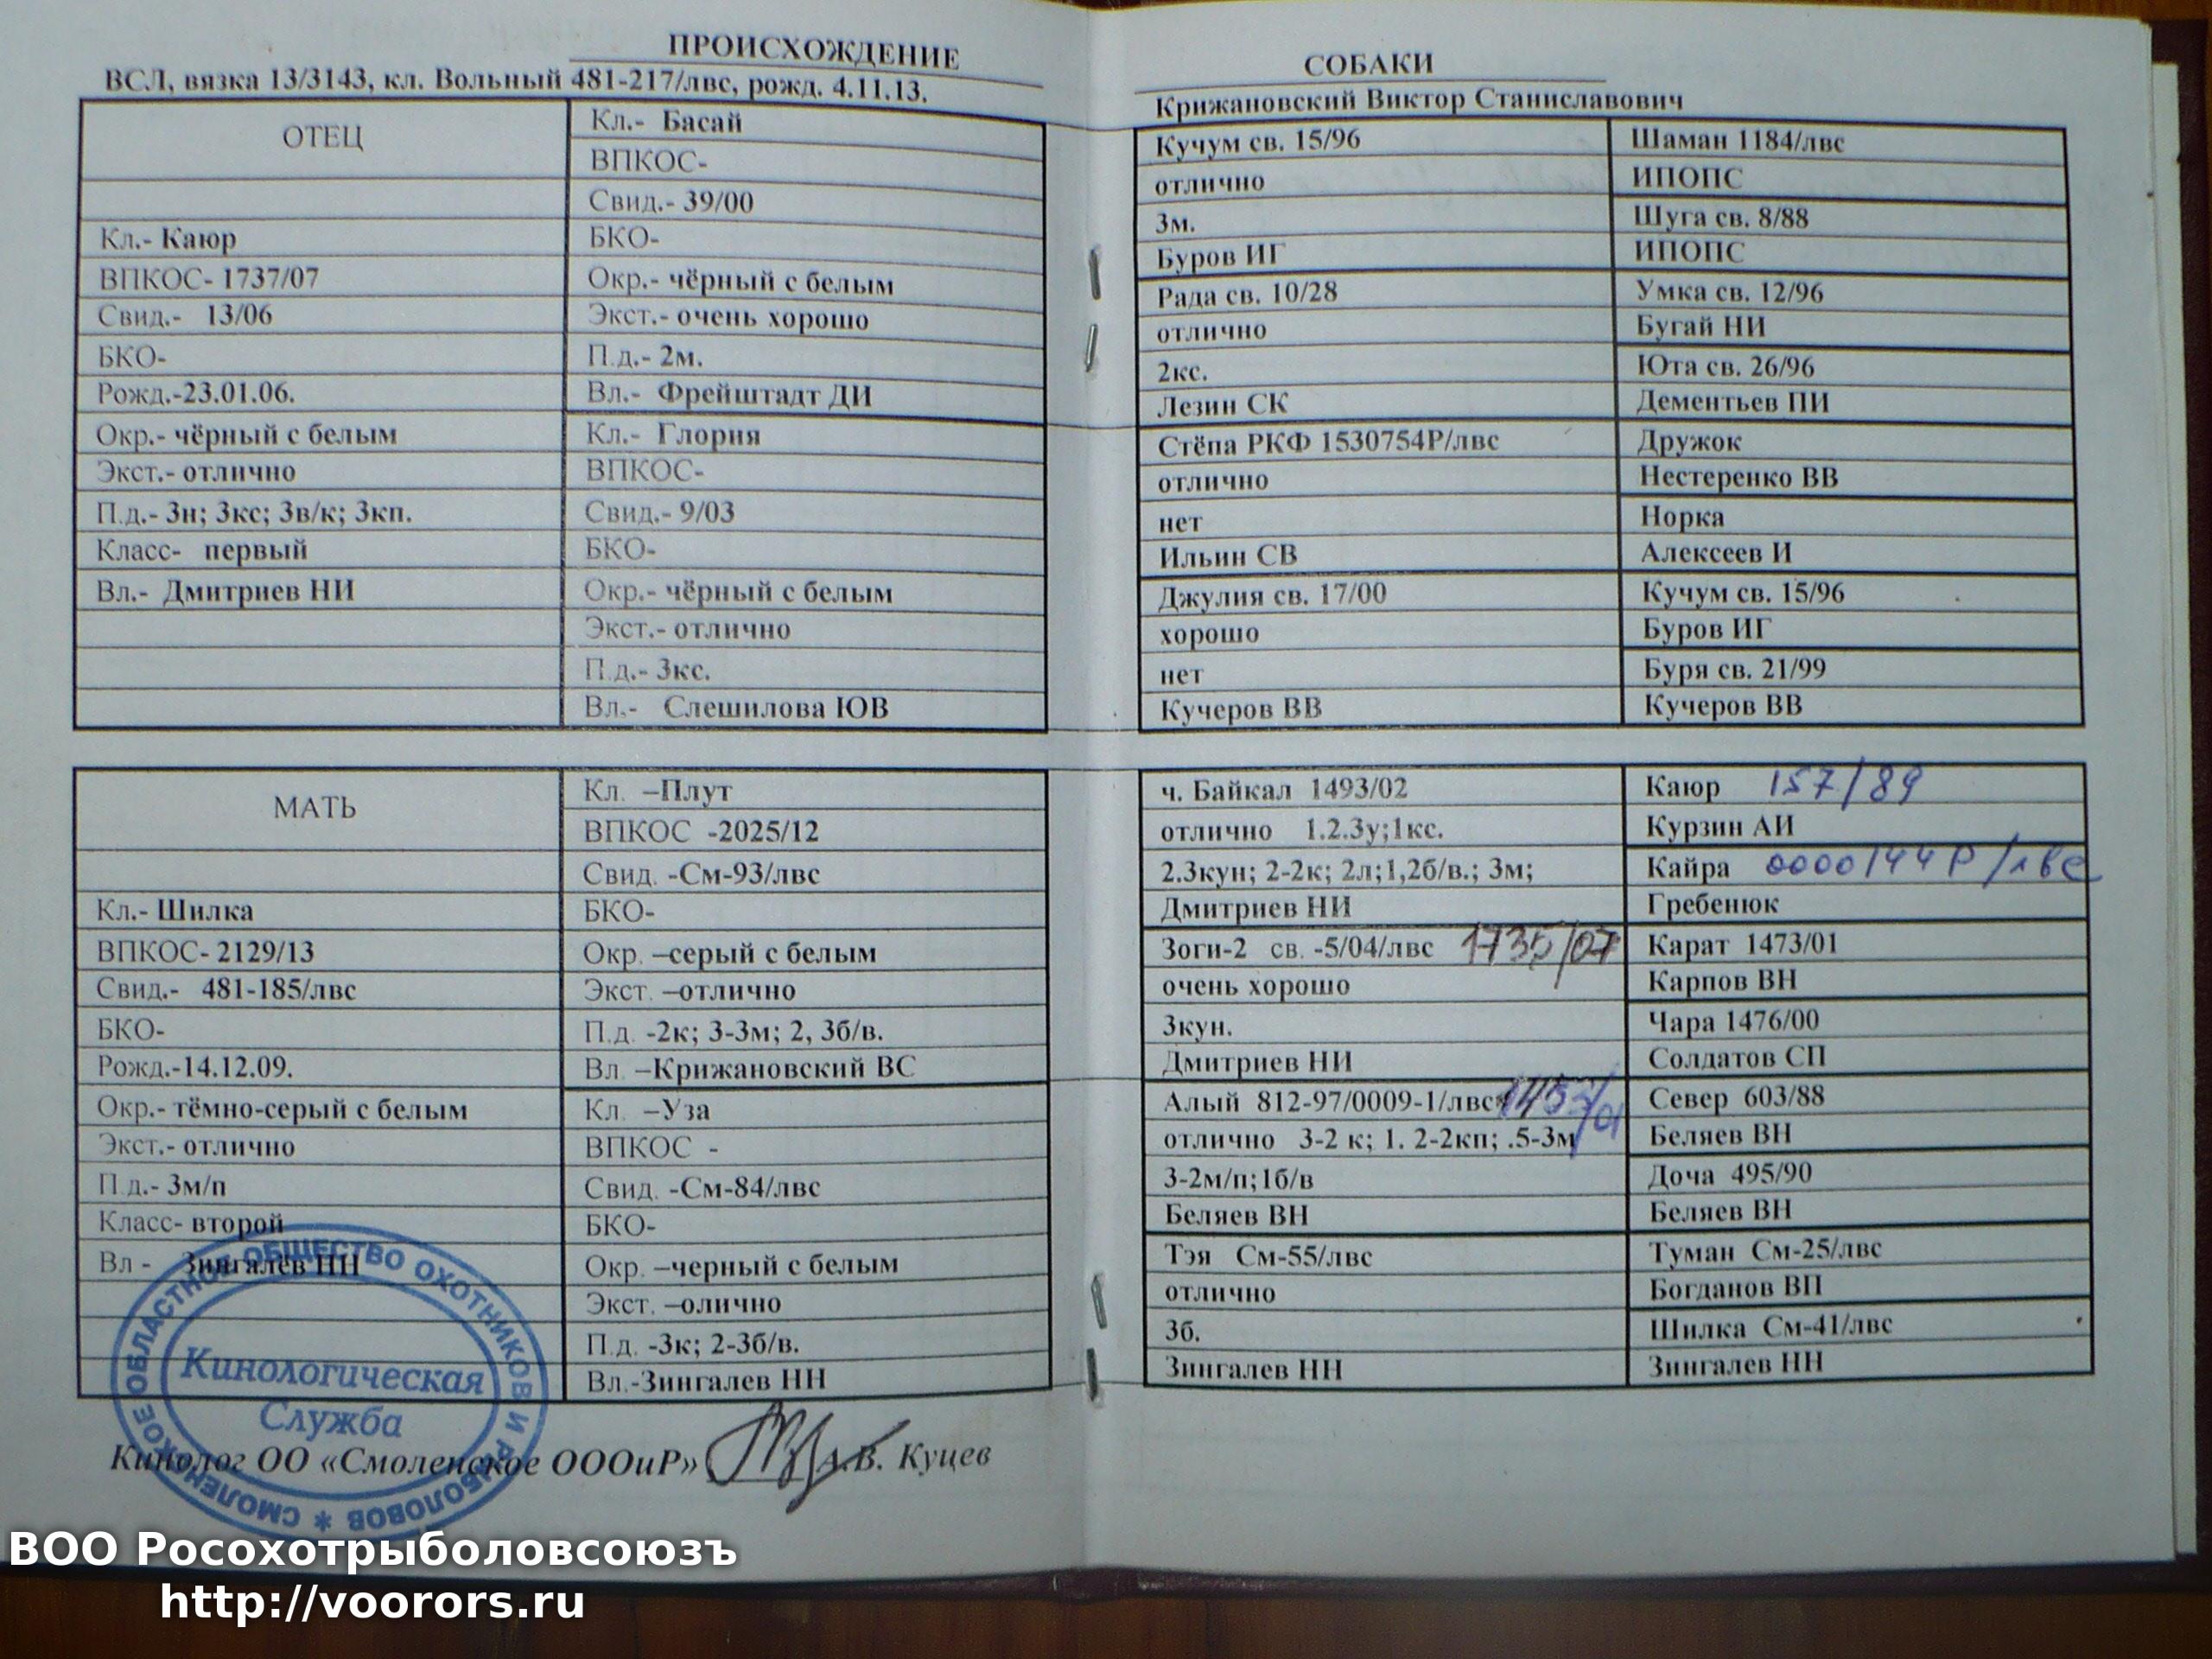 ПРОИСХОЖДЕНИЕ
ВСЛ, вязка 13/3143, кл. Вольный 481-217/лвс, рожд. 4.11.13.
ОТЕЦ
Кл.- Каюр
ВПКОС- 1737/07
Свид.- 13/06
БКО-
Рожд.-23.01.06.
Окр.- чёрный с белым
Экст.- отлично
П.д.- 3н; 3кс; 3в/к; 3кп.
Класс- первый
Вл.- Дмитриев НИ
Кл.- Басай
ВПКОС-
Свид.- 39/00
БКО-
Окр.- чёрный с белым
Экст.- очень хорошо
П.д.- 2м.
Вл.- Фрейштадт ДИ
Кл.- Глория
ВПКОС-
Свид.- 9/03
БКО-
Окр.- чёрный с белым
Экст.- отлично
П.д.- 3кс.
Вл.- Слешилова ЮВ
МАТЬ
Кл.- Шилка
ВПКОС- 2129/13
Свид.- 481-185/лвс
БКО-
Рожд.-14.12.09.
Окр.- тёмно-серый с белым
Экст.- отлично
П.д.- 3м/п
Класс- второй
Вл - Зингалёв НН
Кл. –Плут
ВПКОС -2025/12
Свид. -См-93/лвс
БКО-
Окр. –серый с белым
Экст. –отлично
П.д. -2к; 3-3м; 2, 3б/в.
Вл. –Крижановский ВС
Кл. –Уза
ВПКОС -
Свид. -См-84/лвс
БКО-
Окр. –черный с белым
Экст. –олично
П.д. -3к; 2-3б/в.
Вл.-Зингалев НН
Кинолог ОО «Смоленское ОООиР» А.В. Куцев
СМОЛЕНСКОЕ ОБЛАСТНОЕ ОБЩЕСТВО ОХОТНИКОВ И РЫБОЛОВОВ *
Кинологическая
Служба
СОБАКИ
Крижановский Виктор Станиславович
Кучум св. 15/96
отлично
3м.
Буров ИГ
Рада св. 10/28
отлично
2кс.
Лезин СК
Стёпа РКФ 1530754Р/лвс
отлично
нет
Ильин СВ
Джулия св. 17/00
хорошо
нет
Кучеров ВВ
Шаман 1184/лвс
ИПОПС
Шуга св. 8/88
ИПОПС
Умка св. 12/96
Бугай НИ
Юта св. 26/96
Дементьев ПИ
Дружок
Нестеренко ВВ
Норка
Алексеев И
Кучум св. 15/96
Буров ИГ
Буря св. 21/99
Кучеров ВВ
ч. Байкал 1493/02
отлично 1.2.3у;1кс.
2.3кун; 2-2к; 2л;1,2б/в.; 3м;
Дмитриев НИ
Зоги-2 св. -5/04/лвс 1735/07
очень хорошо
3кун.
Дмитриев НИ
Алый 812-97/0009-1/лвс
отлично 3-2 к; 1. 2-2кп; .5-3м
3-2м/п;1б/в
Беляев ВН
Тэя См-55/лвс
отлично
3б.
Зингалев НН
Каюр 157/89
Курзин АИ
Кайра 0000144Р/лвс
Гребенюк
Карат 1473/01
Карпов ВН
Чара 1476/00
Солдатов СП
Север 603/88
Беляев ВН
Доча 495/90
Беляев ВН
Туман См-25/лвс
Богданов ВП
Шилка См-41/лвс
Зингалев НН
ВОО Росохотрыболовсоюзъ
http://voorors.ru